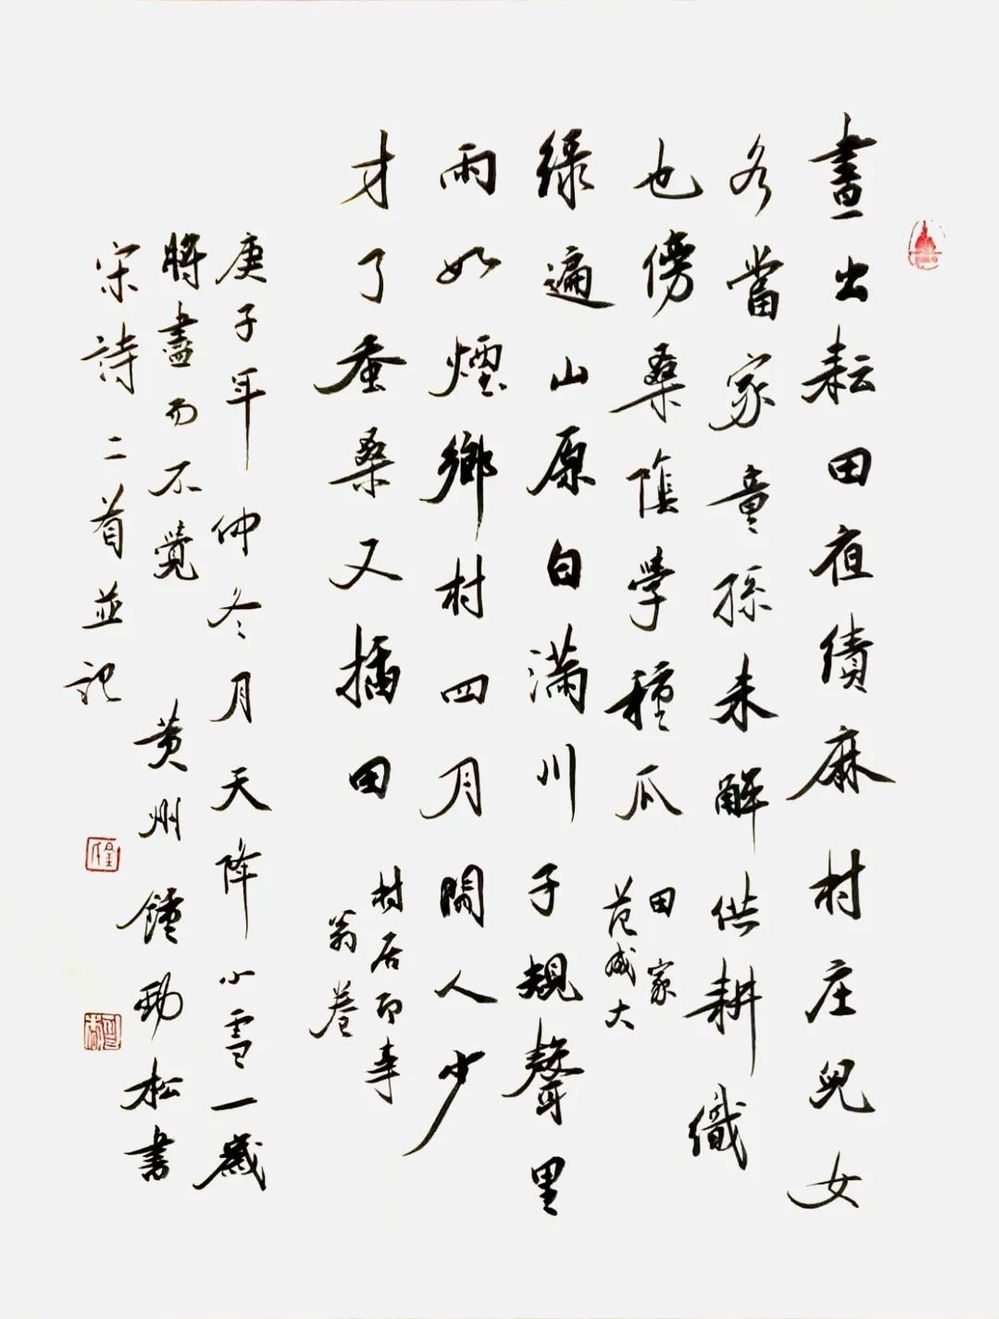 晝出耘田夜績麻村庄兒女
各當家童孫未解供耕織
也傍桑陰學種瓜
田家
范成大
綠遍山原白滿川子規聲里
雨如煙鄉村四月閒人少
才了蚕桑又插田
村居即事
翁卷
庚子年仲冬月天降小雪一歲
將盡而不覺
宋詩二首並記
黃州鍾勁松書